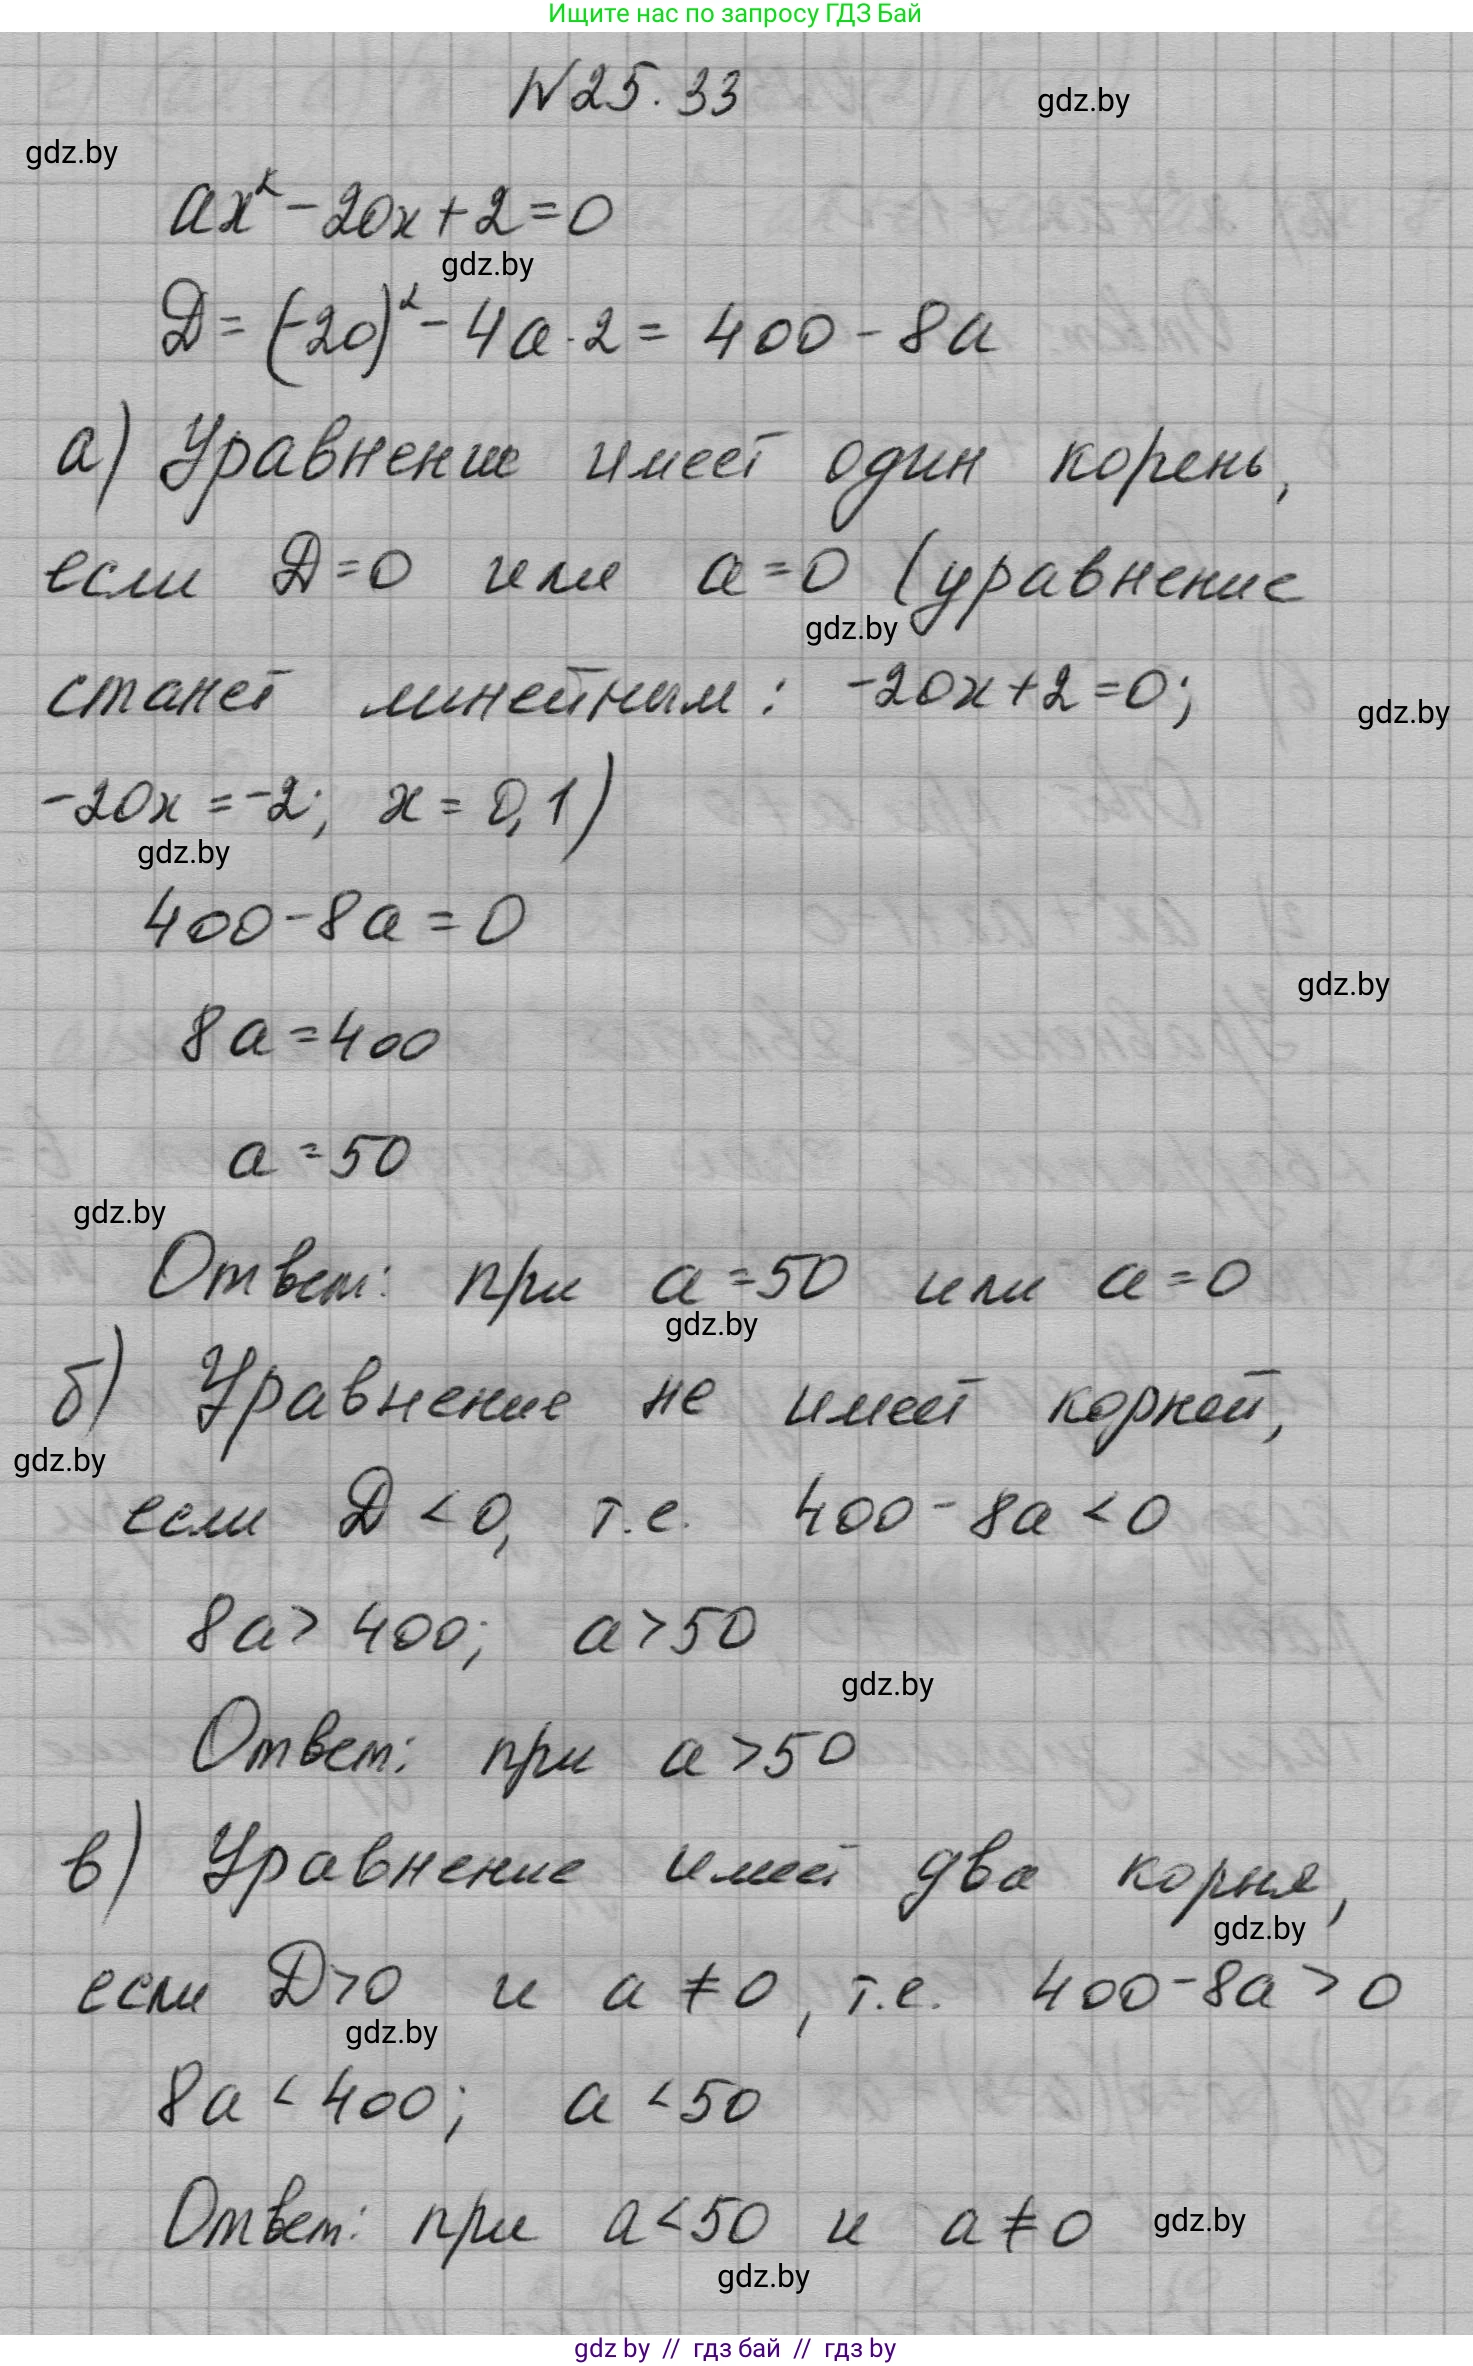 Ищите нас по запросу ГДЗ Бай
N25.33
gdz.by
gdz.by
ax² - 20x + 2 = 0
gdz.by
D = (-20)² - 4a · 2 = 400 - 8a
а) Уравнение имеет один корень,
если D = 0 или a = 0 (уравнение
gdz.by
станет линейным: -20x + 2 = 0;
gdz.by
-20x = -2; x = 0,1)
gdz.by
400 - 8a = 0
gdz.by
8a = 400
a = 50
gdz.by
Ответ: при a = 50 или a = 0
gdz.by
б) Уравнение не имеет корней,
gdz.by
если D < 0, т.е. 400 - 8a < 0
8a > 400; a > 50
gdz.by
Ответ: при a > 50
в) Уравнение имеет два корня,
gdz.by
если D > 0 и a ≠ 0, т.е. 400 - 8a > 0
gdz.by
8a < 400; a < 50
Ответ: при a < 50 и a ≠ 0
gdz.by
gdz.by
gdz by // гдз бай // гдз by